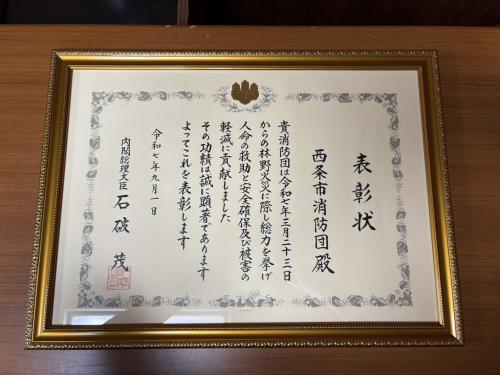 表彰状
西条市消防団殿
貴消防団は令和七年三月二十三日
からの林野火災に際し総力を挙げ
人命の救助と安全確保及び被害の
軽減に貢献しました
その功績は誠に顕著であります
よってこれを表彰します
令和七年九月一日
内閣総理大臣 石破 茂